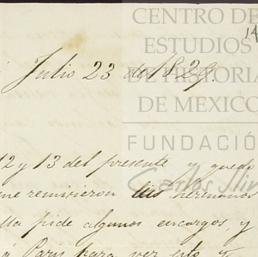 CENTRO DE
ESTUDIOS
DE HISTORIA
DE MEXICO
FUNDACIÓ
Carlos Sli
14
Julio 23 de 829.
12 y 13 del presente y quedo
me remitieron sus hermanos
lla pide algunos encargos, y
á Paris para ver esto y